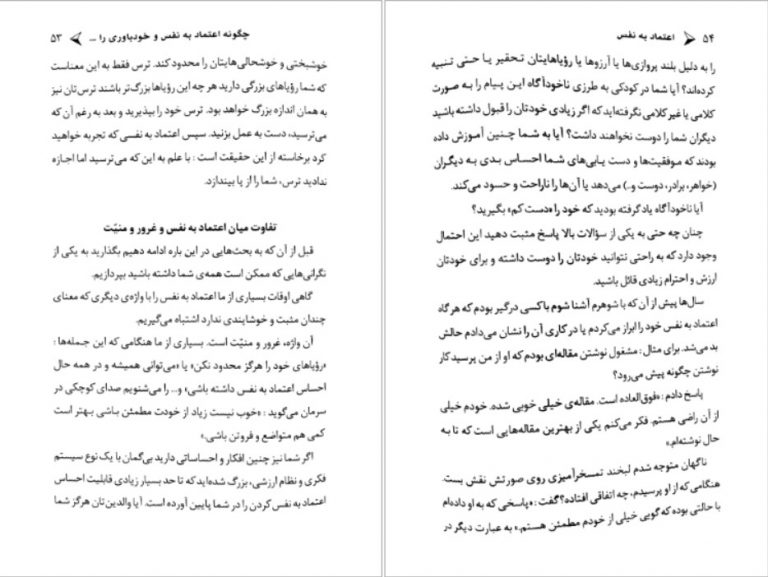 چگونه اعتماد به نفس و خودباوری را ... ۵۳
خوشبختی و خوشحالی‌هایتان را محدود کند. ترس فقط به این معناست
که شما رؤیاهای بزرگی دارید هر چه این رؤیاها بزرگ‌تر باشند ترس‌تان نیز
به همان اندازه بزرگ خواهد بود. ترس خود را بپذیرید و بعد به رغم آن که
می‌ترسید، دست به عمل بزنید. سپس اعتماد به نفسی که تجربه خواهید
کرد برخاسته از این حقیقت است : با علم به این که می‌ترسید اما اجازه
ندادید ترس، شما را از پا بیندازد.
تفاوت میان اعتماد به نفس و غرور و منیّت
قبل از آن که به بحث‌هایی در این باره ادامه دهیم بگذارید به یکی از
نگرانی‌هایی که ممکن است همه‌ی شما داشته باشید بپردازیم.
گاهی اوقات بسیاری از ما اعتماد به نفس را با واژه‌ی دیگری که معنای
چندان مثبت و خوشایندی ندارد اشتباه می‌گیریم.
آن واژه، غرور و منیّت است. بسیاری از ما هنگامی که این جمله‌ها :
«رؤیاهای خود را هرگز محدود نکن» یا «می‌توانی همیشه و در همه حال
احساس اعتماد به نفس داشته باشی» و... را می‌شنویم صدای کوچکی در
سرمان می‌گوید : «خوب نیست زیاد از خودت مطمئن باشی بهتر است
کمی هم متواضع و فروتن باشی.»
اگر شما نیز چنین افکار و احساساتی دارید بی‌گمان با یک نوع سیستم
فکری و نظام ارزشی، بزرگ شده‌اید که تا حد بسیار زیادی قابلیت احساس
اعتماد به نفس کردن را در شما پایین آورده است. آیا والدین‌تان هرگز شما
۵۴ اعتماد به نفس
را به دلیل بلند پروازی‌ها یا آرزوها یا رؤیاهایتان تحقیر یا حتی تنبیه
کرده‌اند؟ آیا شما در کودکی به طرزی ناخودآگاه این پیام را به صورت
کلامی یا غیر کلامی نگرفته‌اید که اگر زیادی خودتان را قبول داشته باشید
دیگران شما را دوست نخواهند داشت؟ آیا به شما چنین آموزش داده
بودند که موفقیت‌ها و دست یابی‌های شما احساس بدی به دیگران
(خواهر، برادر، دوست و...) می‌دهد یا آن‌ها را ناراحت و حسود می‌کند.
آیا ناخودآگاه یاد گرفته بودید که خود را «دست کم» بگیرید؟
چنان چه حتی به یکی از سؤالات بالا پاسخ مثبت دهید این احتمال
وجود دارد که به راحتی نتوانید خودتان را دوست داشته و برای خودتان
ارزش و احترام زیادی قائل باشید.
سال‌ها پیش از آن که با شوهرم آشنا شوم با کسی درگیر بودم که هرگاه
اعتماد به نفس خود را ابراز می‌کردم یا در کاری آن را نشان می‌دادم حالش
بد می‌شد. برای مثال : مشغول نوشتن مقاله‌ای بودم که او از من پرسید کار
نوشتن چگونه پیش می‌رود؟
پاسخ دادم : «فوق‌العاده است. مقاله‌ی خیلی خوبی شده. خودم خیلی
از آن راضی هستم. فکر می‌کنم یکی از بهترین مقاله‌هایی است که تا به
حال نوشته‌ام.»
ناگهان متوجه شدم لبخند تمسخرآمیزی روی صورتش نقش بست.
هنگامی که از او پرسیدم، چه اتفاقی افتاده؟ گفت : «پاسخی که به او داده‌ام
با حالتی بوده که گویی خیلی از خودم مطمئن هستم.» به عبارت دیگر در